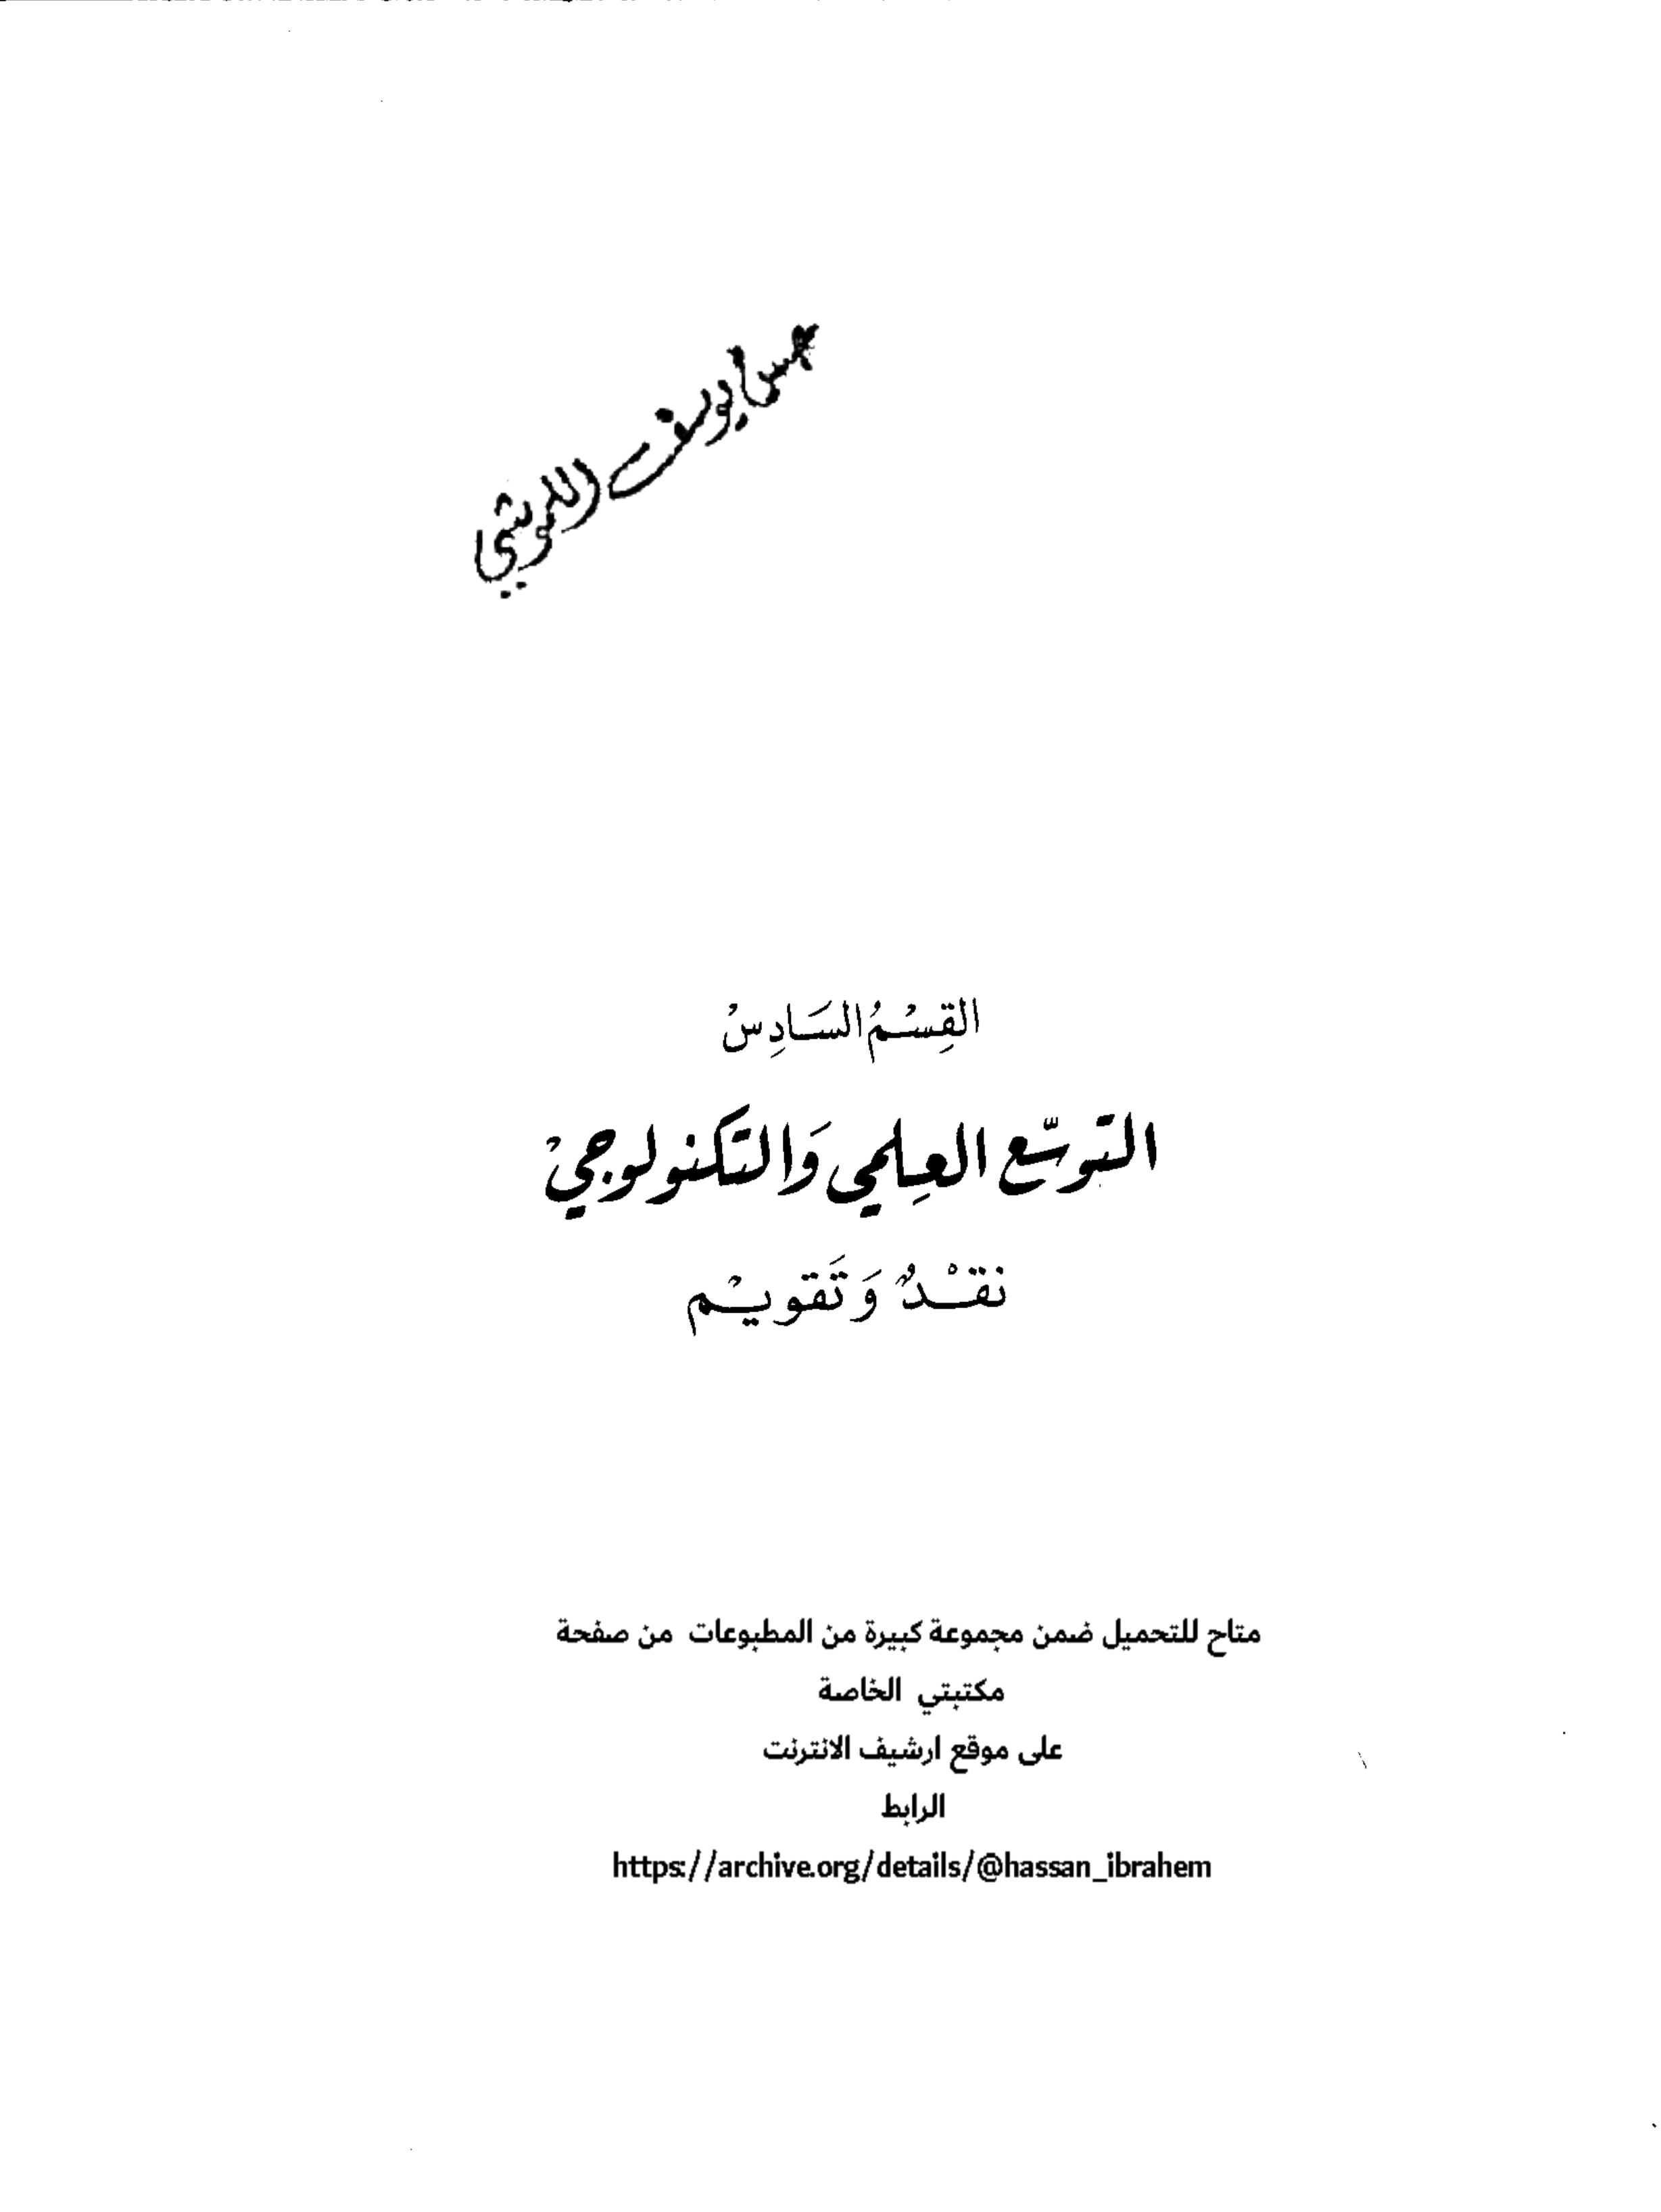 يوسف
القِسْمُ السَادِسْ
التوسّع العِلمي وَالتكنولوجيْ
نقْدٌ وَتَقويْم
متاح للتحميل ضمن مجموعة كبيرة من المطبوعات من صفحة
مكتبتي الخاصة
على موقع ارشيف الانترنت
الرابط
https://archive.org/details/@hassan_ibrahem